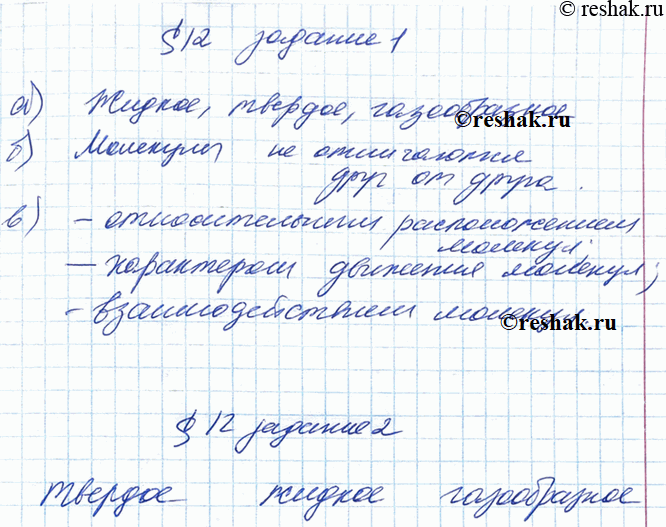 © reshak.ru
§12 задание 1
а) Жидкое, твердое, газообразное
© reshak.ru
б) Молекулы не отличаются
друг от друга.
в) – относительным расположением
молекул;
– характером движения молекул;
– взаимодействием молекул
© reshak.ru
§12 задание 2
твердое жидкое газообразное